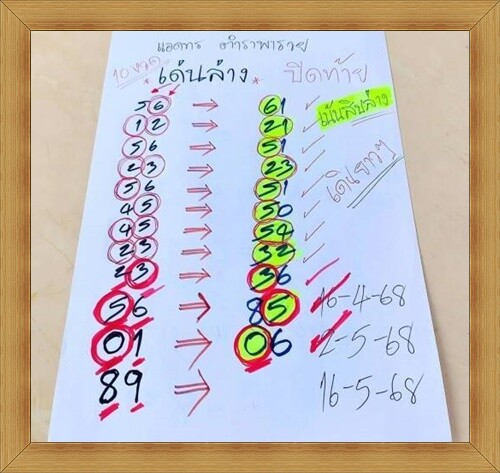 แอดทร ตำราพารวย
10 งวด *เด่นล่าง* ปิดท้าย
56 → 61 ✓ เน้นสิบล่าง
12 → 21 ✓
56 → 51 ✓
23 → 23 ✓ เดินยาวๆ
56 → 51 ✓
45 → 50 ✓
45 → 54 ✓
23 → 32 ✓
23 → 36 ✓
56 → 85 16-4-68
01 → 06 2-5-68
89 → 16-5-68